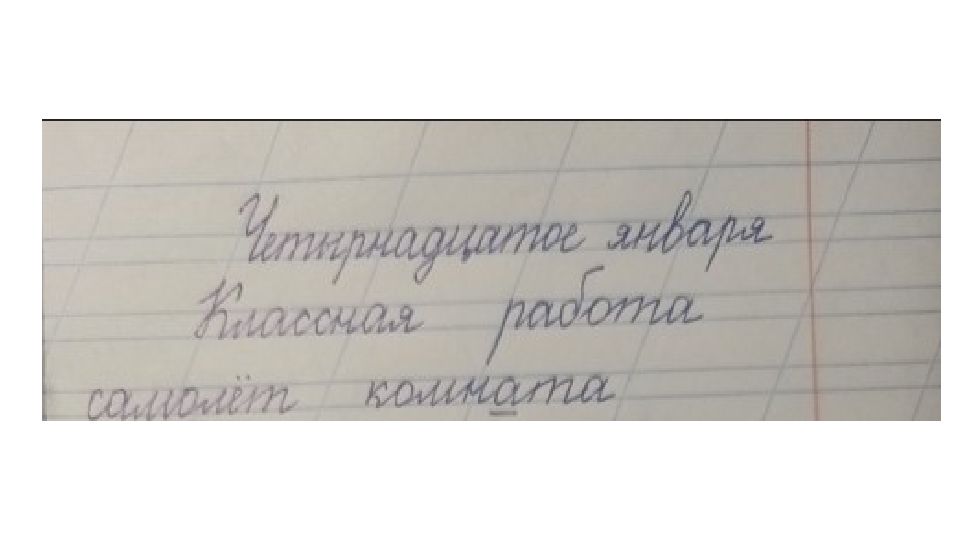 Четырнадцатое января
Классная работа
самолёт комната